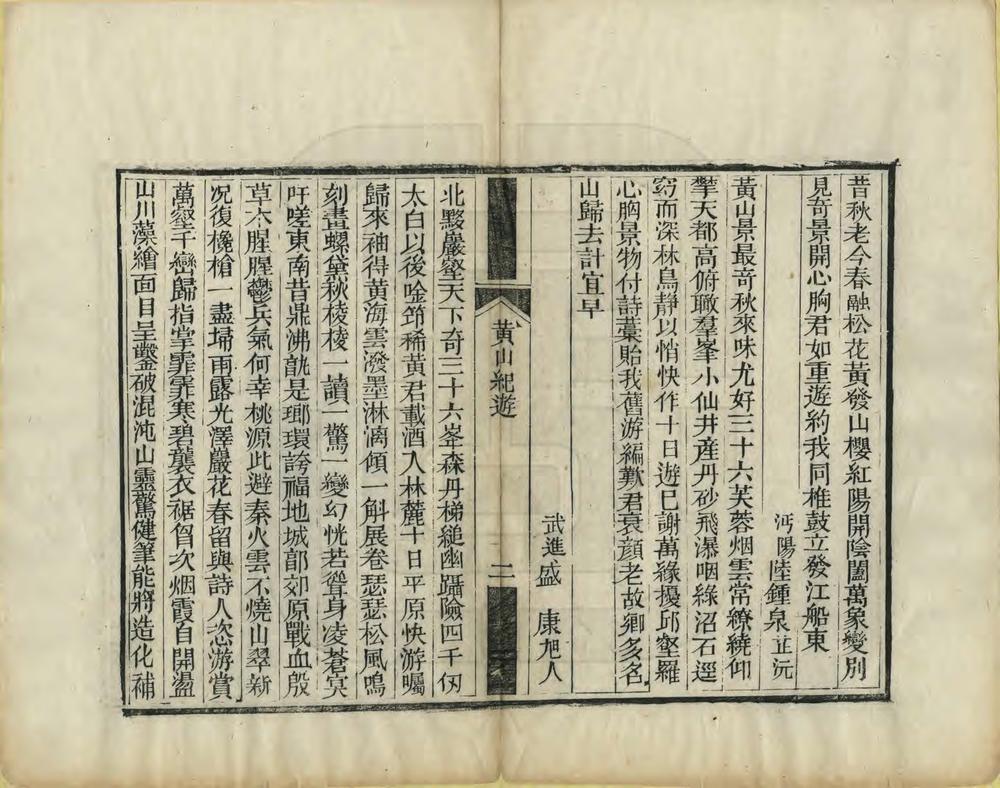 昔秋老今春融松花黃發山櫻紅陽開陰闔萬象變別
見奇景開心胸君如重遊約我同椎鼓立發江船東
沔陽陸鍾泉芷沅
黃山景最奇秋來味尤好三十六芙蓉烟雲常繚繞仰
擎天都高俯瞰羣峯小仙井產丹砂飛瀑咽綠沼石逕
窈而深林鳥靜以悄快作十日遊已謝萬緣擾邱壑羅
心胸景物付詩藁貽我舊游編歎君衰顏老故鄉多名
山歸去計宜早
武進盛 康旭人
黃山紀遊 二
北黟巖壑天下奇三十六峯森丹梯縋幽躡險四千仞
太白以後唫筇稀黃君載酒入林麓十日平原快游囑
歸來袖得黃海雲潑墨淋漓傾一斛展卷瑟瑟松風鳴
刻畫螺黛秋稜稜一讀一驚一變幻恍若聳身凌蒼冥
吁嗟東南昔鼎沸孰是瑯環誇福地城郭郊原戰血殷
草木腥腥鬱兵氣何幸桃源此避秦火雲不燒山翠新
况復欃槍一盡埽雨露光澤巖花春留與詩人恣游賞
萬壑千巒歸指掌霏霏寒碧襲衣裾胷次烟霞自開盪
山川藻繪面目呈鑿破混沌山靈驚健筆能將造化補